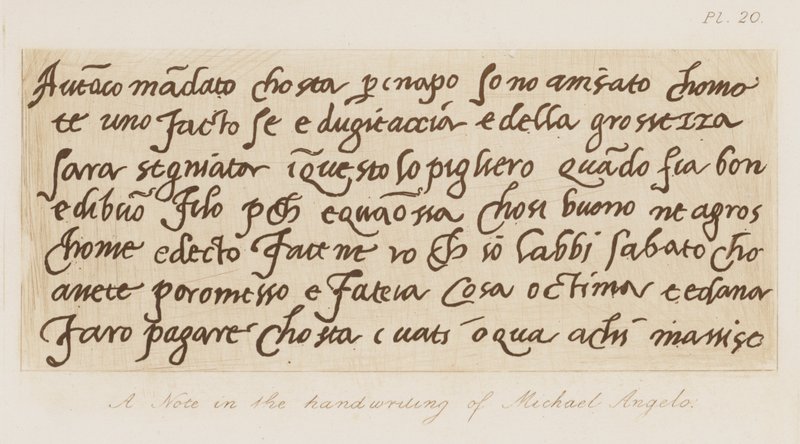 Pl. 20.
Autōco mādato chosta p̄ cinapo so no avisato chomo
te uno facto se e dugitaccia e della grossezza
sara segniator i questo lo pigliero quādo sia bon
e dibuō filo pch equaōssa chosi buono ne agros
chome edecto facene vo ch io labbi sabato cho
avete poromesso e fateia cosa octima e edana
faro pagare chosta
A Note in the handwriting of Michael Angelo.